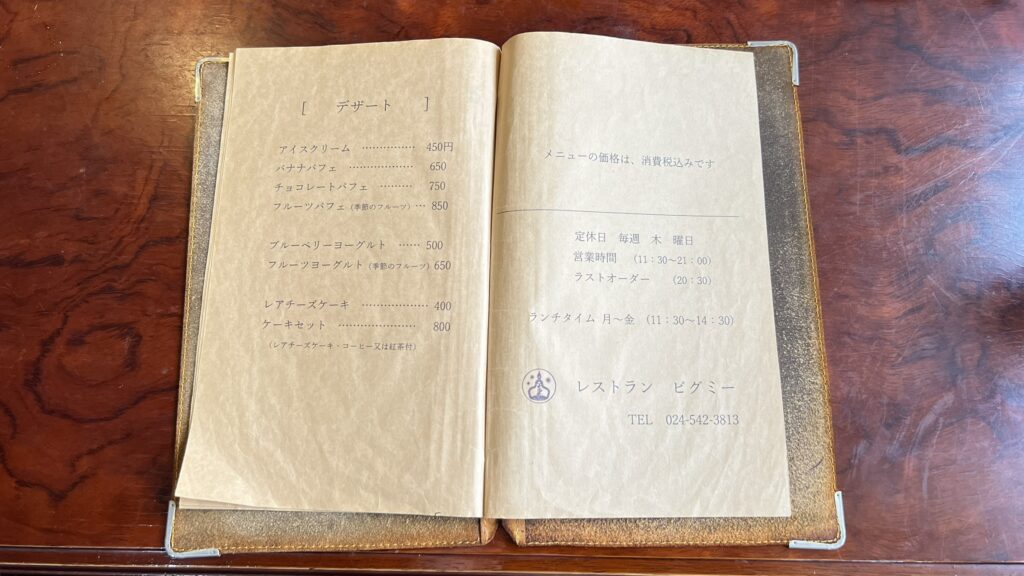 [ デザート ]
アイスクリーム …………… 450円
バナナパフェ ……………… 650
チョコレートパフェ ……… 750
フルーツパフェ（季節のフルーツ）… 850
ブルーベリーヨーグルト …… 500
フルーツヨーグルト（季節のフルーツ）650
レアチーズケーキ ……………… 400
ケーキセット ………………… 800
（レアチーズケーキ・コーヒー又は紅茶付）
メニューの価格は、消費税込みです
定休日 毎週 木 曜日
営業時間 （11：30～21：00）
ラストオーダー （20：30）
ランチタイム 月～金 （11：30～14：30）
レストラン ピグミー
TEL 024-542-3813